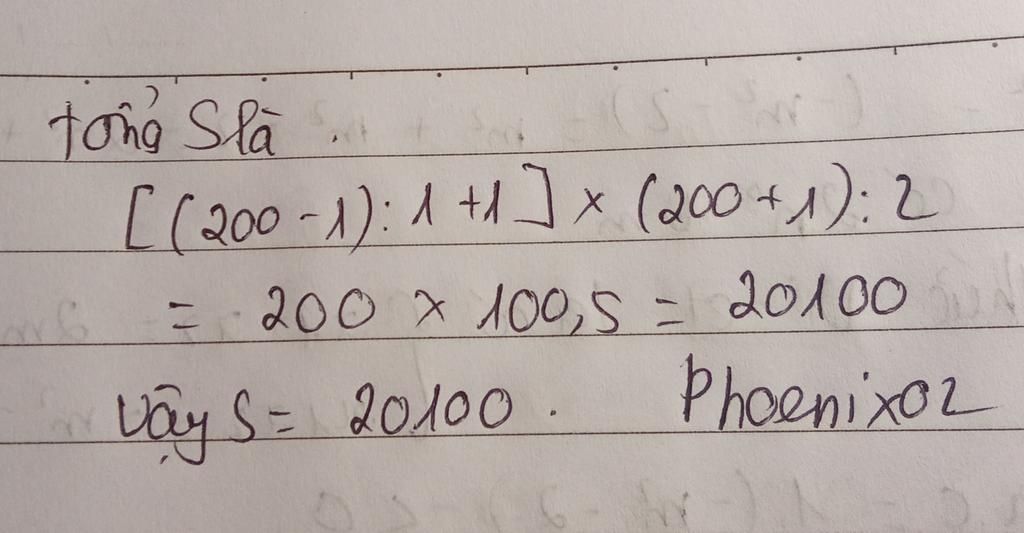 tổng S là.
[(200 - 1) : 1 + 1] × (200 + 1) : 2
= 200 × 100,5 = 20100
Vậy S = 20100. Phoenix02